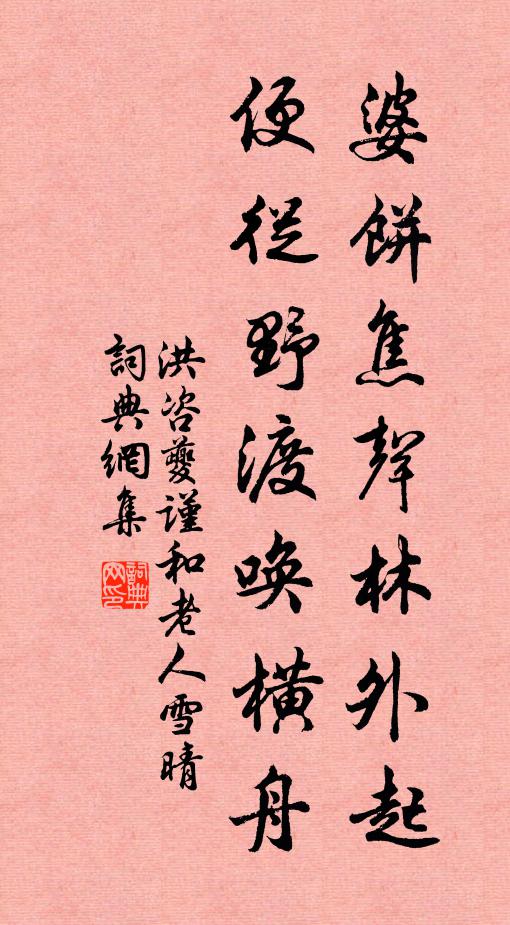 婆餅焦聲林外起
便從野渡喚橫舟
洪咨夔謹和老人雪晴
詞典網集
詞典網印